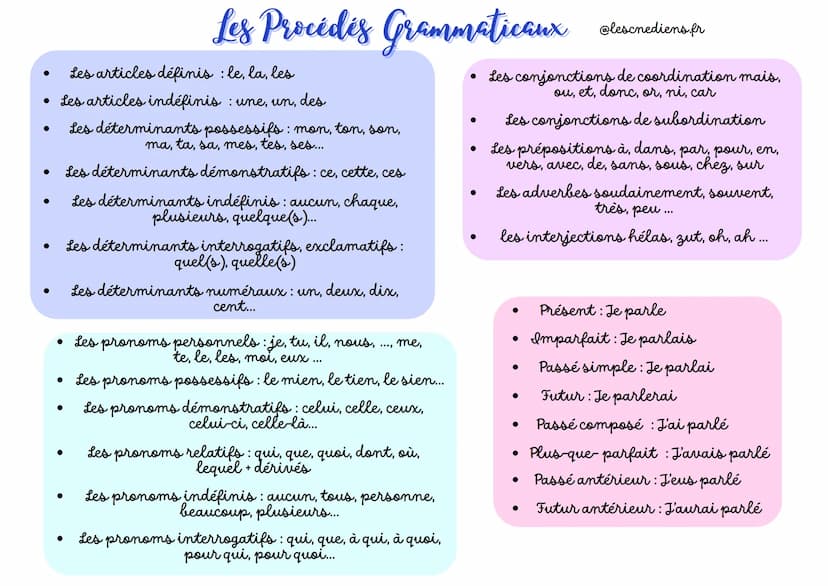 Les Procédés Grammaticaux
@lescnediens.fr
• Les articles définis : le, la, les
• Les articles indéfinis : une, un, des
• Les déterminants possessifs : mon, ton, son,
ma, ta, sa, mes, tes, ses...
• Les déterminants démonstratifs : ce, cette, ces
• Les déterminants indéfinis : aucun, chaque,
plusieurs, quelque(s)...
• Les déterminants interrogatifs, exclamatifs :
quel(s), quelle(s)
• Les déterminants numéraux : un, deux, dix,
cent...
• Les pronoms personnels : je, tu, il, nous, ..., me,
te, le, les, moi, eux ...
• Les pronoms possessifs : le mien, le tien, le sien...
• Les pronoms démonstratifs : celui, celle, ceux,
celui-ci, celle-là...
• Les pronoms relatifs : qui, que, quoi, dont, où,
lequel + dérivés
• Les pronoms indéfinis : aucun, tous, personne,
beaucoup, plusieurs...
• Les pronoms interrogatifs : qui, que, à qui, à quoi,
pour qui, pour quoi...
• Les conjonctions de coordination mais,
ou, et, donc, or, ni, car
• Les conjonctions de subordination
• Les prépositions à, dans, par, pour, en,
vers, avec, de, sans, sous, chez, sur
• Les adverbes soudainement, souvent,
très, peu ...
• les interjections hélas, zut, oh, ah ...
• Présent : Je parle
• Imparfait : Je parlais
• Passé simple : Je parlai
• Futur : Je parlerai
• Passé composé : J'ai parlé
• Plus-que- parfait : J'avais parlé
• Passé antérieur : J'eus parlé
• Futur antérieur : J'aurai parlé